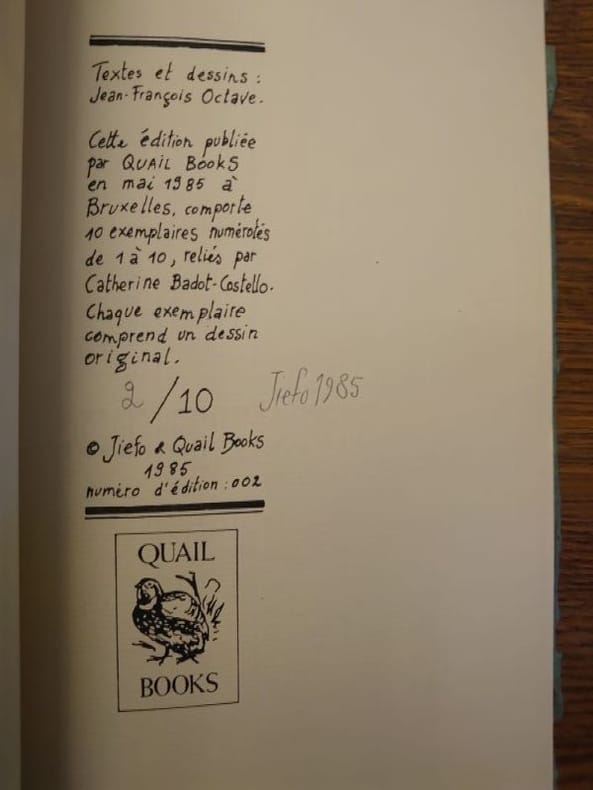 Textes et dessins :
Jean-François Octave.
Cette édition publiée
par QUAIL BOOKS
en mai 1985 à
Bruxelles, comporte
10 exemplaires numérotés
de 1 à 10, reliés par
Catherine Badot-Costello.
Chaque exemplaire
comprend un dessin
original.
2/10 Jiefo 1985
© Jiefo & Quail Books
1985
numéro d'édition : 002
QUAIL
BOOKS